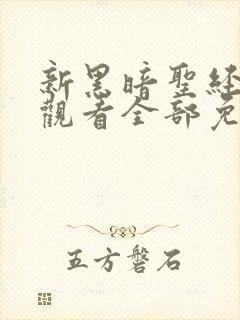 新黑暗聖經
觀看全部免
五方磐石